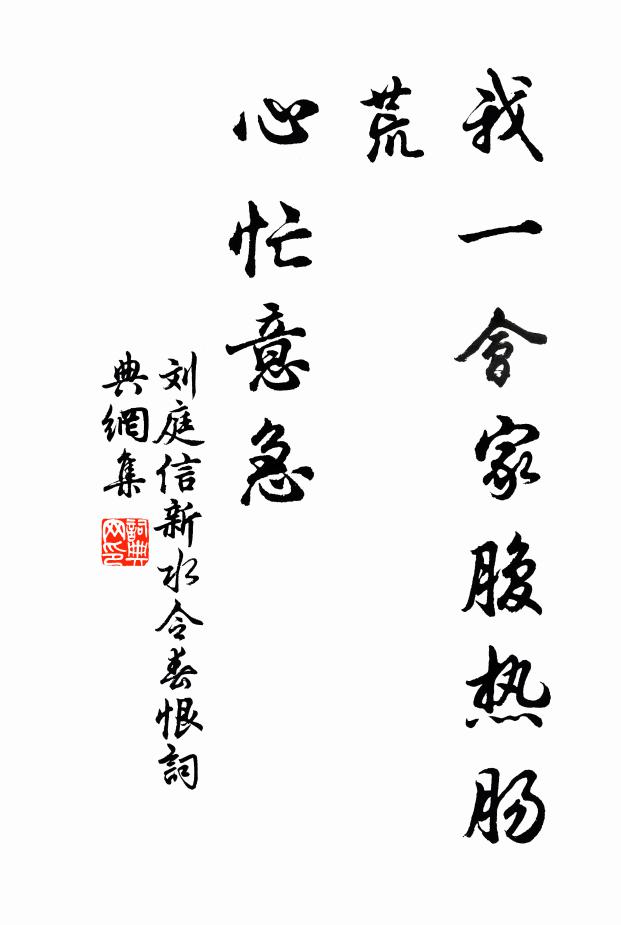 我一會家腹热肠
荒
心忙意急
刘庭信新水令春恨詞
典網集
詞典
网印